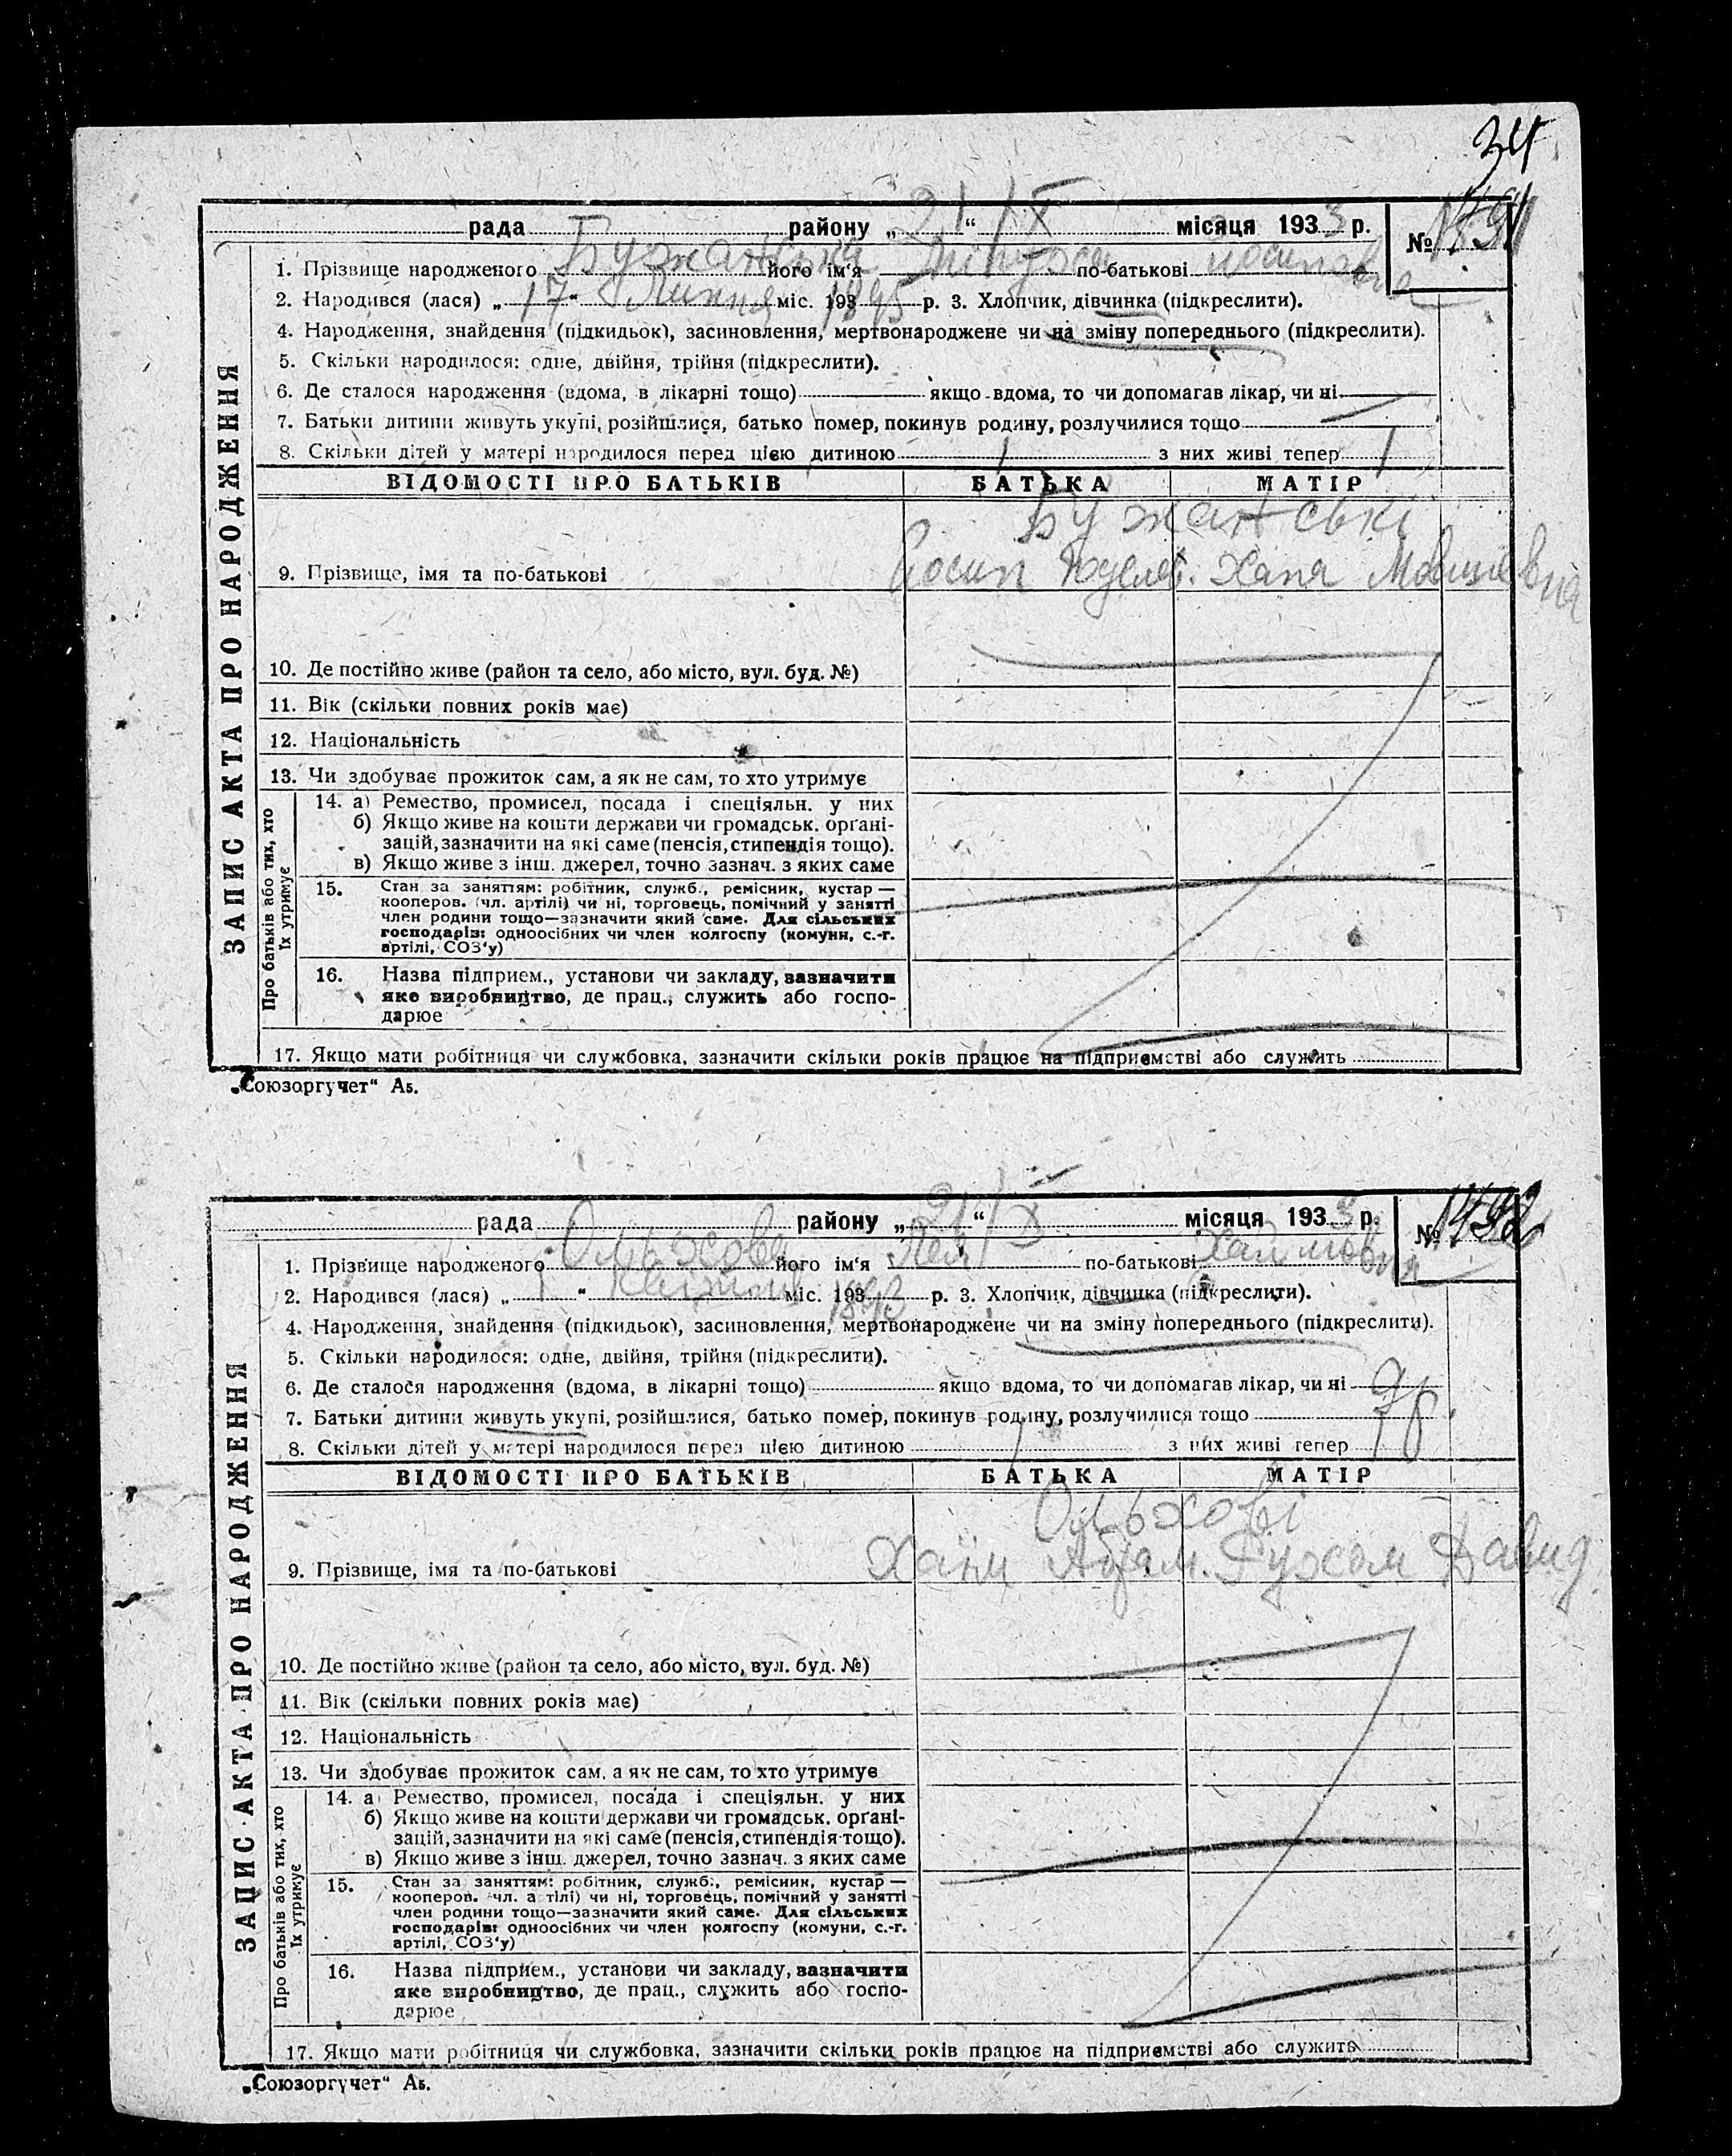 34
рада районu „21/X“ місяця 1933 р. № 1491
1. Прізвище народженого Бужанська його ім'я по-батькові Йосиповна
2. Народився (лася) „17“ Липня міс. 1895 р. 3. Хлопчик, дівчинка (підкреслити).
4. Народження, знайдення (підкидьок), засиновлення, мертвонароджене чи на зміну попереднього (підкреслити).
5. Скільки народилося: одне, двійня, трійня (підкреслити).
6. Де сталося народження (вдома, в лікарні тощо) якщо вдома, то чи допомагав лікар, чи ні
7. Батьки дитини живуть укупі, розійшлися, батько помер, покинув родину, розлучилися тощо
8. Скільки дітей у матері народилося перед цією дитиною з них живі тепер
ВІДОМОСТІ ПРО БАТЬКІВ БАТЬКА МАТІР
Бужанські
9. Прізвище, імя та по-батькові Йосип Хана Мовшевна
10. Де постійно живе (район та село, або місто, вул. буд. №)
11. Вік (скільки повних років має)
12. Національність
13. Чи здобуває прожиток сам, а як не сам, то хто утримує
14. а) Ремество, промисел, посада і спеціяльн. у них
б) Якщо живе на кошти держави чи громадськ. органі-
зацій, зазначити на які саме (пенсія, стипендія тощо).
в) Якщо живе з інш. джерел, точно зазнач. з яких саме
15. Стан за заняттям: робітник, служб., ремісник, кустар —
кооперов. (чл. артілі) чи ні, торговець, помічний у занятті
член родини тощо—зазначити який саме. Для сільських
господарів: одноосібних чи член колгоспу (комуни, с.-г.
артілі, СОЗ'у)
16. Назва підприєм., установи чи закладу, зазначити
яке виробництво, де прац., служить або госпо-
дарює
17. Якщо мати робітниця чи службовка, зазначити скільки років працює на підприємстві або служить
Про батьків або тих, хто
їх утримує
ЗАПИС АКТА ПРО НАРОДЖЕННЯ
„Союзоргучет“ Аб.
рада району „21/X“ місяця 1933 р. № 1492
1. Прізвище народженого Ольхова його ім'я Лея по-батькові Хаймовна
2. Народився (лася) „1“ Квітня міс. 1893 р. 3. Хлопчик, дівчинка (підкреслити).
4. Народження, знайдення (підкидьок), засиновлення, мертвонароджене чи на зміну попереднього (підкреслити).
5. Скільки народилося: одне, двійня, трійня (підкреслити).
6. Де сталося народження (вдома, в лікарні тощо) якщо вдома, то чи допомагав лікар, чи ні
7. Батьки дитини живуть укупі, розійшлися, батько помер, покинув родину, розлучилися тощо
8. Скільки дітей у матері народилося перед цією дитиною з них живі тепер
ВІДОМОСТІ ПРО БАТЬКІВ БАТЬКА МАТІР
Ольхові
9. Прізвище, імя та по-батькові Хаїм Абрам. Рухом Давид.
10. Де постійно живе (район та село, або місто, вул. буд. №)
11. Вік (скільки повних років має)
12. Національність
13. Чи здобуває прожиток сам, а як не сам, то хто утримує
14. а) Ремество, промисел, посада і спеціяльн. у них
б) Якщо живе на кошти держави чи громадськ. органі-
зацій, зазначити на які саме (пенсія, стипендія тощо).
в) Якщо живе з інш. джерел, точно зазнач. з яких саме
15. Стан за заняттям: робітник, служб., ремісник, кустар —
кооперов. (чл. артілі) чи ні, торговець, помічний у занятті
член родини тощо—зазначити який саме. Для сільських
господарів: одноосібних чи член колгоспу (комуни, с.-г.
артілі, СОЗ'у)
16. Назва підприєм., установи чи закладу, зазначити
яке виробництво, де прац., служить або госпо-
дарює
17. Якщо мати робітниця чи службовка, зазначити скільки років працює на підприємстві або служить
Про батьків або тих, хто
їх утримує
ЗАПИС АКТА ПРО НАРОДЖЕННЯ
„Союзоргучет“ Аб.